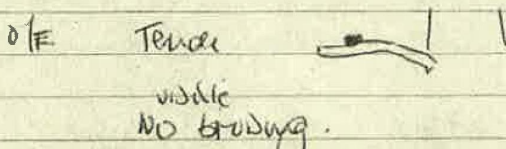 O/E Tender
visible
No bruising.